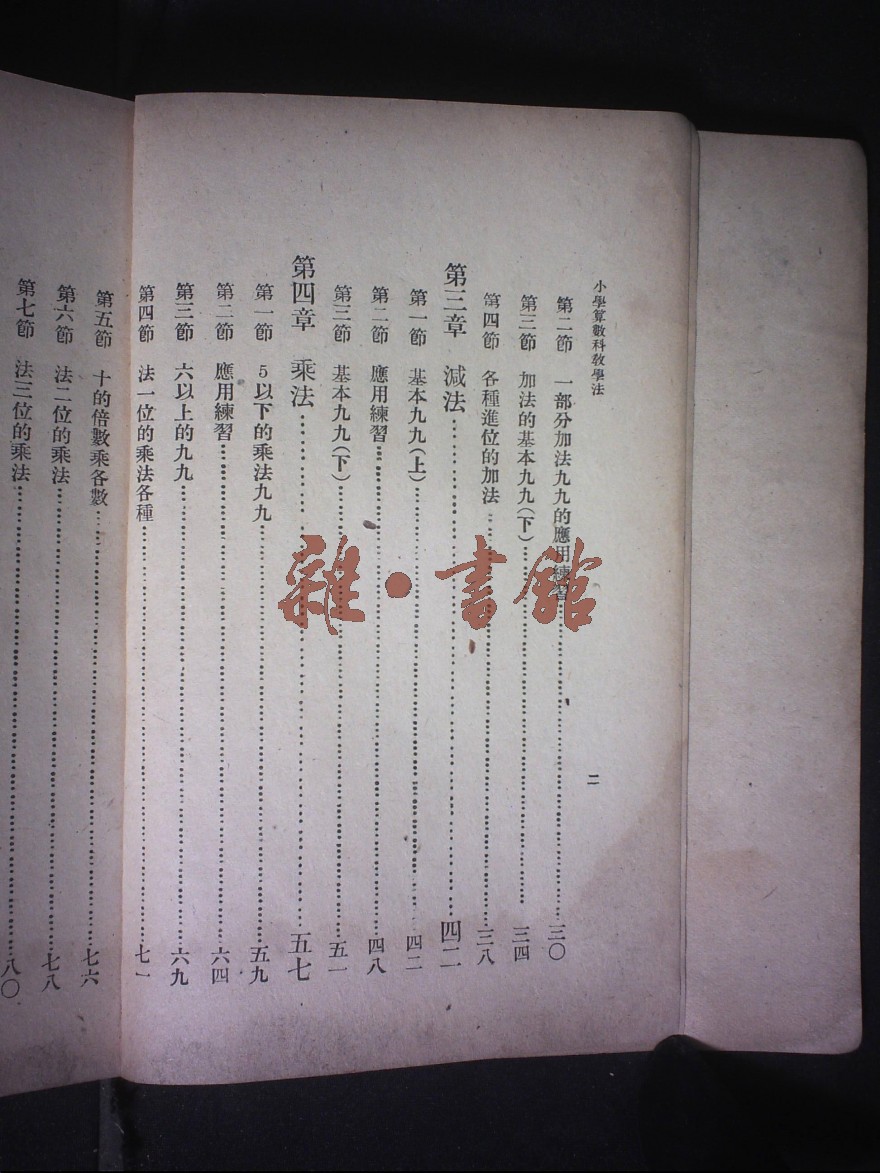 小學算數科教學法
二
第二節 一部分加法九九的應用練習……三〇
第三節 加法的基本九九(下)……三四
第四節 各種進位的加法……三八
第三章 減法……四二
第一節 基本九九(上)……四二
第二節 應用練習……四八
第三節 基本九九(下)……五一
第四章 乘法……五七
第一節 5以下的乘法九九……五九
第二節 應用練習……六四
第三節 六以上的九九……六九
第四節 法一位的乘法各種……七一
第五節 十的倍數乘各數……七六
第六節 法二位的乘法……七八
第七節 法三位的乘法……八〇
雜·書館